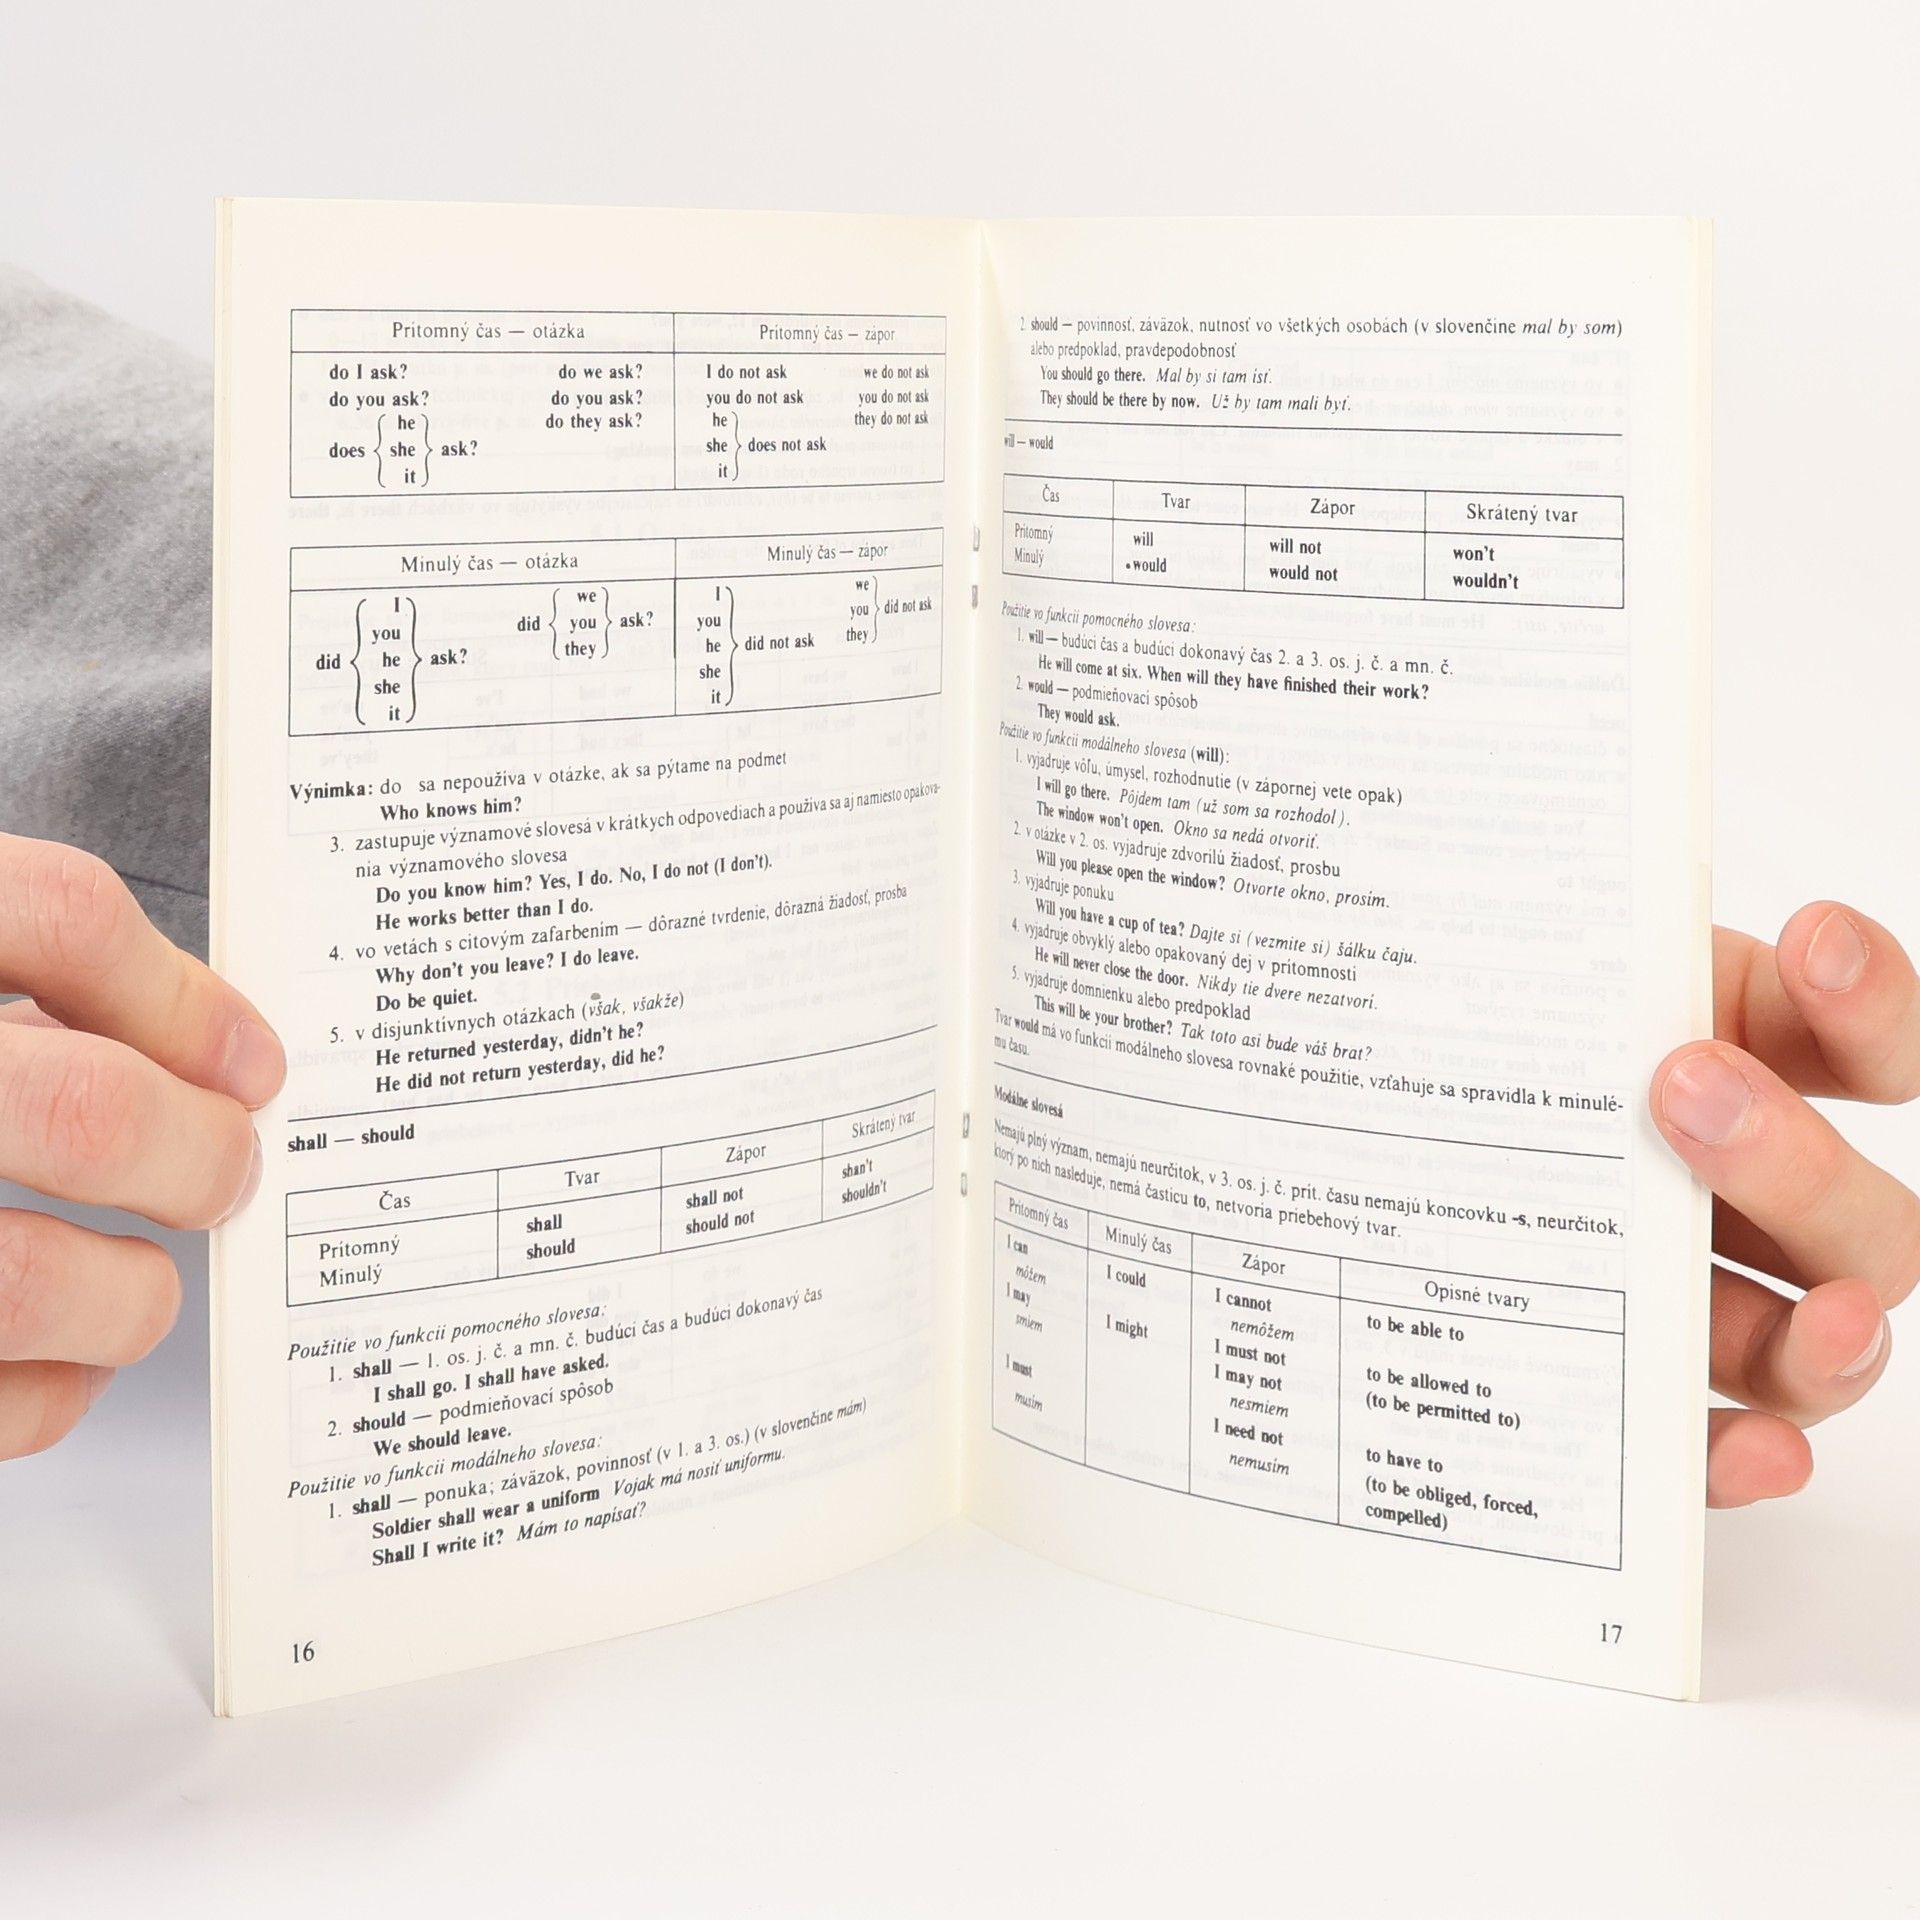 Prítomný čas — otázka Prítomný čas — zápor
do I ask? do we ask? I do not ask we do not ask
do you ask? do you ask? you do not ask you do not ask
he do they ask? he they do not ask
does she ask? she does not ask
it it
Minulý čas — otázka Minulý čas — zápor
I we I we
you did you ask? you you did not ask
did he ask? they he did not ask they
she she
it it
Výnimka: do sa nepoužíva v otázke, ak sa pýtame na podmet
Who knows him?
3. zastupuje významové slovesá v krátkych odpovediach a používa sa aj namiesto opakova-
nia významového slovesa
Do you know him? Yes, I do. No, I do not (I don't).
He works better than I do.
4. vo vetách s citovým zafarbením — dôrazné tvrdenie, dôrazná žiadosť, prosba
Why don't you leave? I do leave.
Do be quiet.
5. v disjunktívnych otázkach (však, všakže)
He returned yesterday, didn't he?
He did not return yesterday, did he?
shall — should
Čas Tvar Zápor Skrátený tvar
Prítomný shall shall not shan't
Minulý should should not shouldn't
Použitie vo funkcii pomocného slovesa:
1. shall — 1. os. j. č. a mn. č. budúci čas a budúci dokonavý čas
I shall go. I shall have asked.
2. should — podmieňovací spôsob
We should leave.
Použitie vo funkcii modálneho slovesa:
1. shall — ponuka; záväzok, povinnosť (v 1. a 3. os.) (v slovenčine mám)
Soldier shall wear a uniform Vojak má nosiť uniformu.
Shall I write it? Mám to napísať?
16
2. should — povinnosť, záväzok, nutnosť vo všetkých osobách (v slovenčine mal by som)
alebo predpoklad, pravdepodobnosť
You should go there. Mal by si tam ísť.
They should be there by now. Už by tam mali byť.
will — would
Čas Tvar Zápor Skrátený tvar
Prítomný will will not won't
Minulý would would not wouldn't
Použitie vo funkcii pomocného slovesa:
1. will — budúci čas a budúci dokonavý čas 2. a 3. os. j. č. a mn. č.
He will come at six. When will they have finished their work?
2. would — podmieňovací spôsob
They would ask.
Použitie vo funkcii modálneho slovesa (will):
1. vyjadruje vôľu, úmysel, rozhodnutie (v zápornej vete opak)
I will go there. Pôjdem tam (už som sa rozhodol).
The window won't open. Okno sa nedá otvoriť.
2. v otázke v 2. os. vyjadruje zdvorilú žiadosť, prosbu
Will you please open the window? Otvorte okno, prosím.
3. vyjadruje ponuku
Will you have a cup of tea? Dajte si (vezmite si) šálku čaju.
4. vyjadruje obvyklý alebo opakovaný dej v prítomnosti
He will never close the door. Nikdy tie dvere nezatvorí.
5. vyjadruje domnienku alebo predpoklad
This will be your brother? Tak toto asi bude váš brat?
Tvar would má vo funkcii modálneho slovesa rovnaké použitie, vzťahuje sa spravidla k minulé-
mu času.
Modálne slovesá
Nemajú plný význam, nemajú neurčitok, v 3. os. j. č. prít. času nemajú koncovku -s, neurčitok,
ktorý po nich nasleduje, nemá časticu to, netvoria priebehový tvar.
Prítomný čas Minulý čas Zápor Opisné tvary
I can I could I cannot to be able to
môžem nemôžem
I may I might I must not to be allowed to
smiem I may not (to be permitted to)
nesmiem
I must I need not to have to
musím nemusím (to be obliged, forced,
compelled)
17